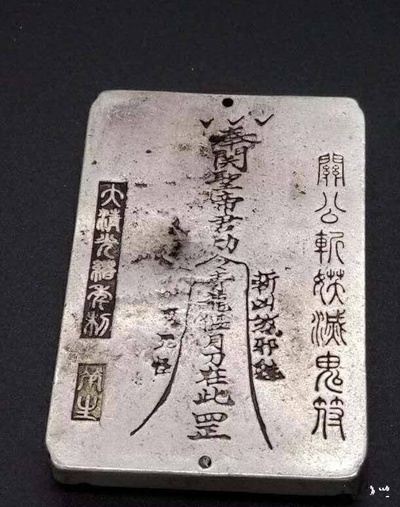 關公斬妖滅鬼符
奉関聖帝君勅令青龍偃月刀在此罡
大清光緒年制